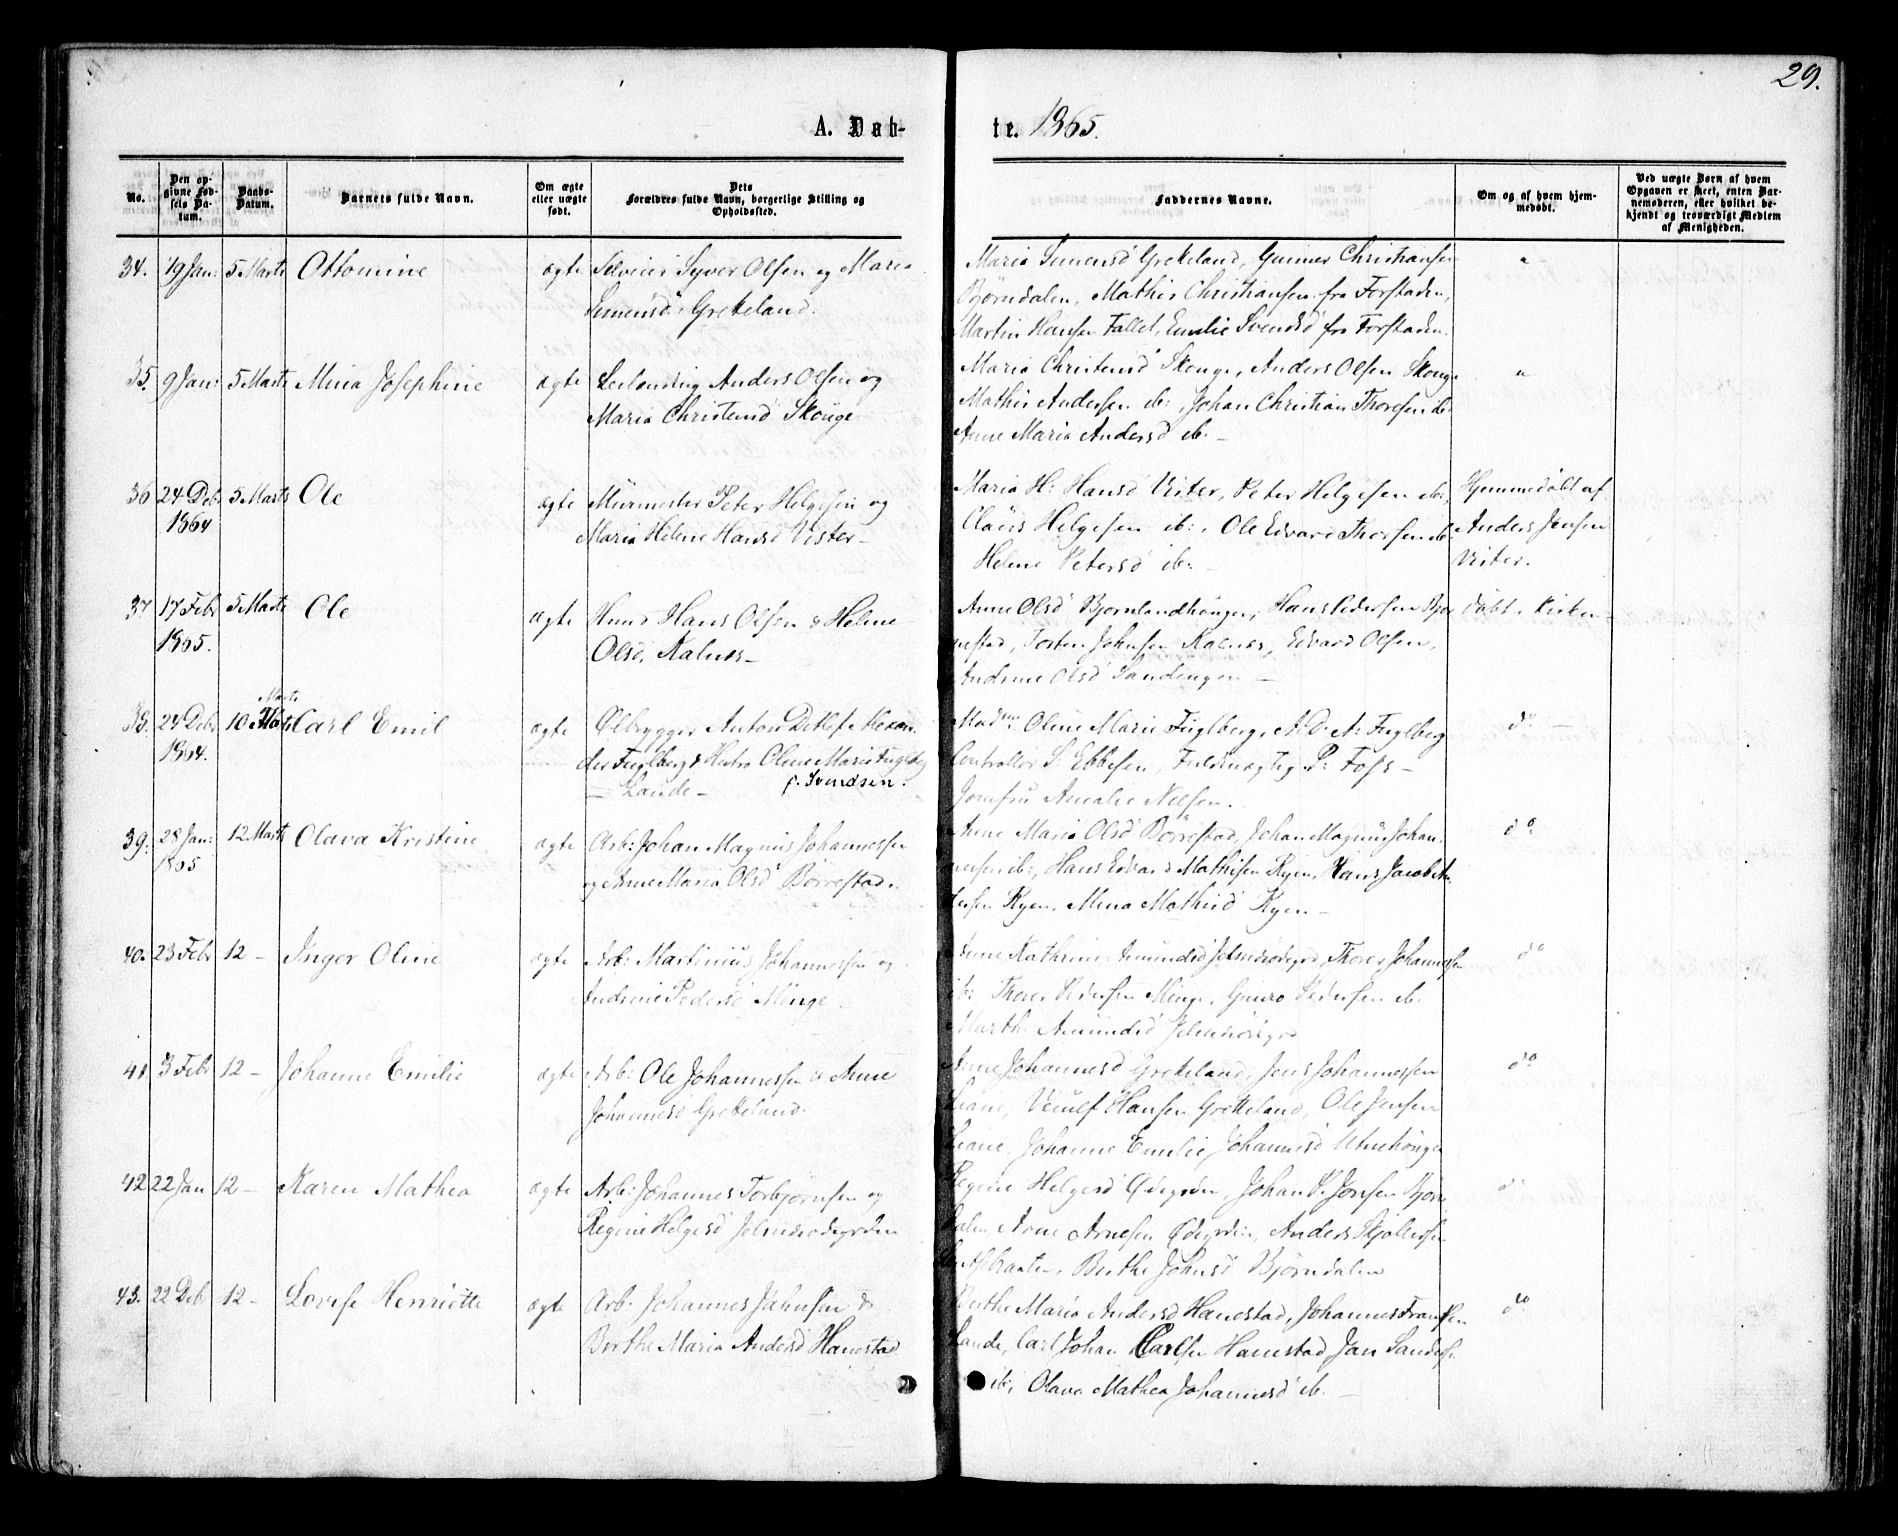 29.
A. Døb-
te. 1865.
No.
Den op-
givne Fød-
sels Da-
tum.
Daabs-
Datum.
Barnets fulde Navn.
Om ægte
eller uægte
født.
Dets
Forældres fulde Navn, borgerlige Stilling og
Opholdssted.
Faddernes Navne.
Om og af hvem hjem-
medøbt.
Ved uægte Børn af hvem
Opgaven er skeet, enten Bar-
nemoderen, eller hvilket be-
kjendt og troværdigt Medlem
af Menigheden.
34. 19 Jan: 5 Marts Ottomine ægte Selveier Syver Olsen og Maria
Simensd Grekeland.
Maria Simensd Grekeland, Gunner Christiansen
Bjørndalen, Mathis Christiansen fra Forstaden,
Martin Hansen Fallet, Emilie Svendsd fra Forstaden.
35. 9 Jan: 5 Marts Mina Josephine ægte Leilending Anders Olsen og
Maria Christensd Skouge
Maria Christensd Skouge, Anders Olsen Skouge
Mathis Andersen ib:, Johan Christian Thoresen ib:
Anne Maria Andersd ib. –
36 24 Deb 5 Marts Ole ægte Murmester Peter Helgesen og
1864
Maria Helene Hansd Vister –
Maria H: Hansd Vister, Peter Helgesen ib:, Hjemmedøbt af
Claus Helgesen ib:, Ole Edvard Thorsen ib: Anders Jensen
Helene Petersd ib: – Vister.
37 17 Febr 5 Marts Ole ægte Huusm Hans Olsen & Helene
1865.
Olsd, Kalnes –
Anne Olsd Bjørnlandhaugen, Hans Pedersen Bjør døbt i Kirken –
nestad, Torsten Johnsen Kalnæs, Edvard Olsen,
Andrine Olsd Sandengen –
Marts
38. 24 Debr 10 Carl Emil ægte Ølbrygger Anton Detlef Alexan
1864.
der Fuglberg & Hustro Oline Marie Fuglbg
– Lande – f. Svendsen.
Madme Oline Marie Fuglberg, A. D. A. Fuglberg do –
Controllør S. Ebbesen, Fuldmægtig P: Foss –
Jomfru Amalie Nilsen.
39. 28 Jan: 12 Marts Olava Kristine ægte Arb: Johan Magnus Johannessen
1865
og Anne Maria Olsd Børrestad.
Anne Maria Olsd Børrestad, Johan Magnus Johan do
nessen ib:, Hans Edvard Mathisen Ryen, Hans Jacob An
dersen Ryen, Mina Mathisd Ryen –
40. 23 Febr 12 – Inger Oline ægte Arb: Martinius Johannessen og
Andrine Pedersd Minge –
Anne Kathrine Amundsd Jelmerødegrd, Thorer Johannessen do
ib: Thorer Pedersen Minge, Gunro Pedersen ib.
Marth. Amundsd Jelmerødegrd
41. 3 Febr 12 – Johanne Emilie ægte Arb: Ole Johannessen & Anne
Johannesd Grekeland.
Anne Johannesd Grekeland, Jens Johannessen do
Liane, Hansen Grekeland, Ole Jensen
Liane, Johanne Emilie Johannesd
42 22 Jan 12 – Karen Mathea ægte Arb: Johannes Torbjørnsen og
Regine Helgesd Jelmerødegrden
Regine Helgesd Ødegrden, Johan P. Jonsen Bjørn do
dalen Arne Arnesen Ødegrden, Anders Skjollersen
Berthe Johnsd Bjørndalen
43. 22 Deb 12 – Lovise Henriette ægte Arb: Johannes Jansen &
Berthe Maria Andersd Hanestad
Berthe Maria Andersd Hanestad, Johannes Frantsen do
Lande, Carl Johan Carlsen Hanestad Jan Sandersen
ib:, Olava Mathea Johannesd ib. –